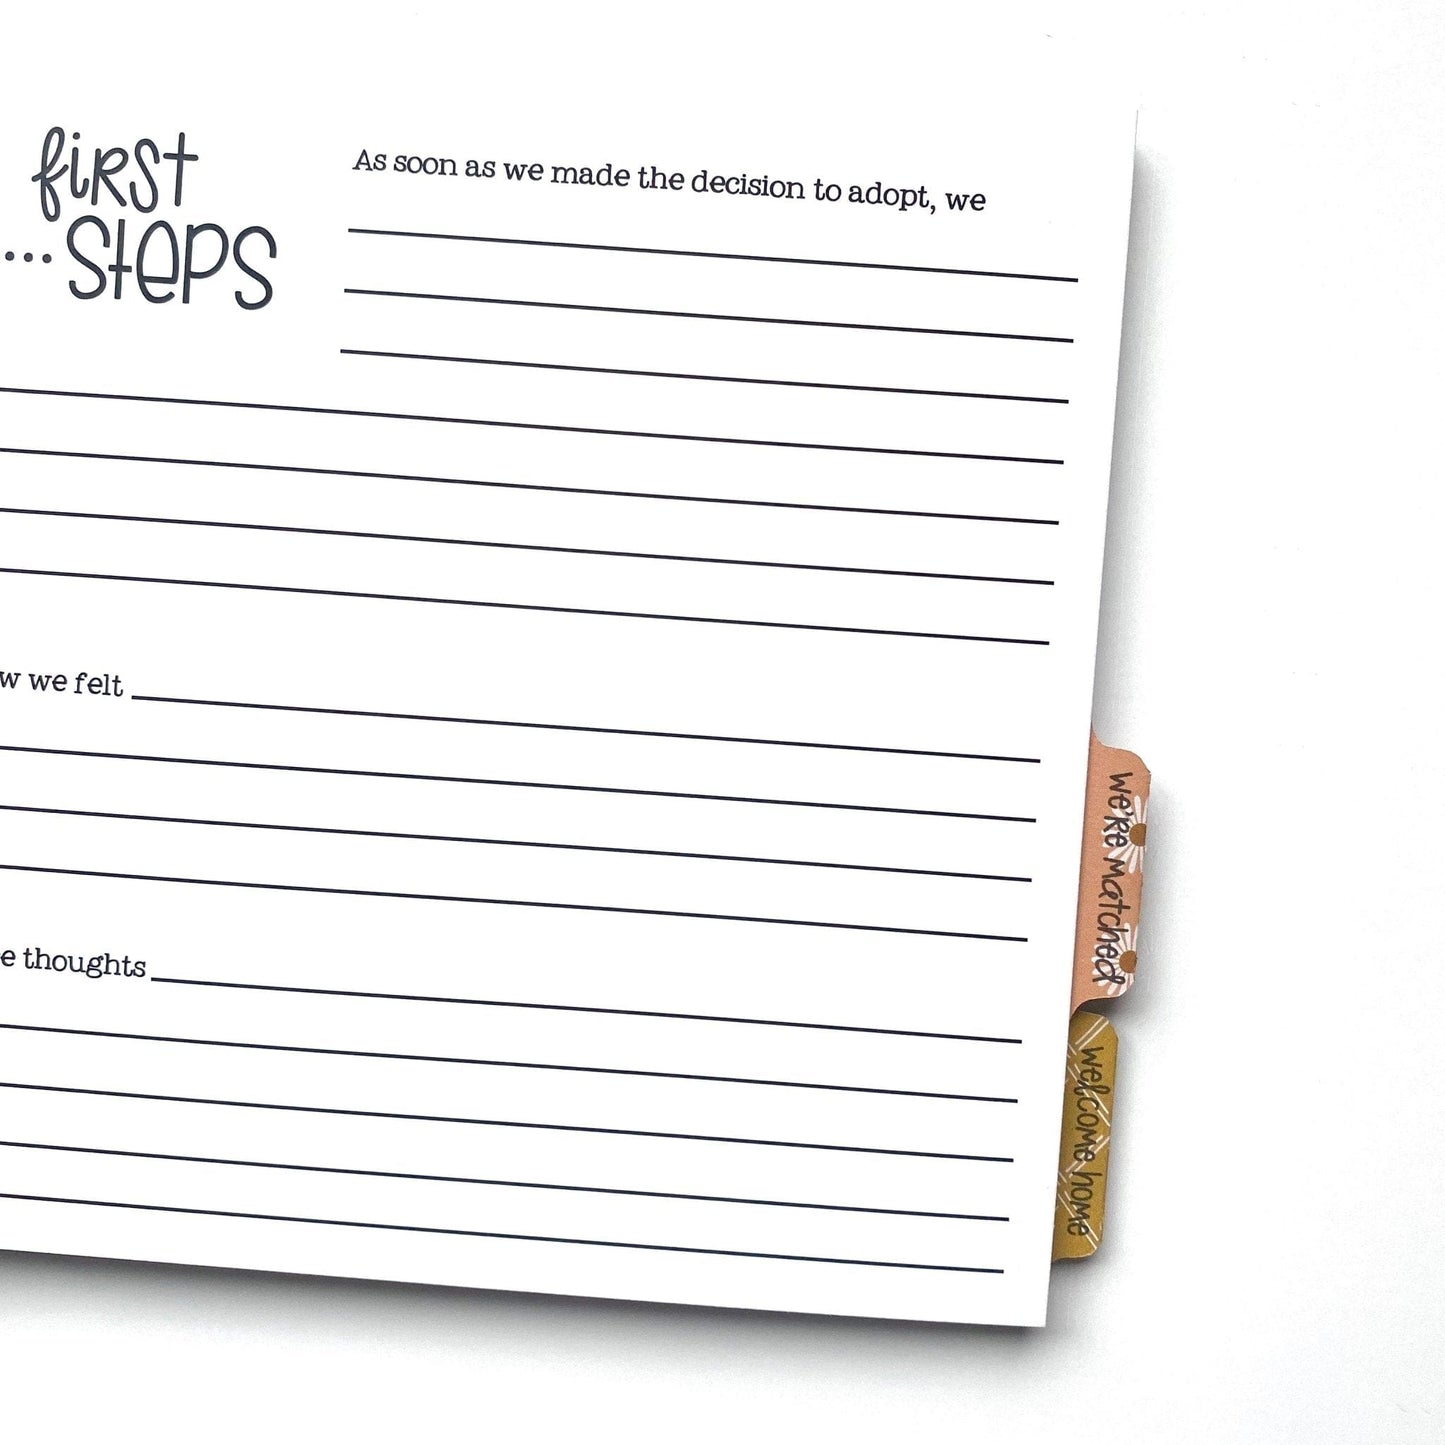 first
...steps
As soon as we made the decision to adopt, we
we felt
thoughts
we're matched
welcome home